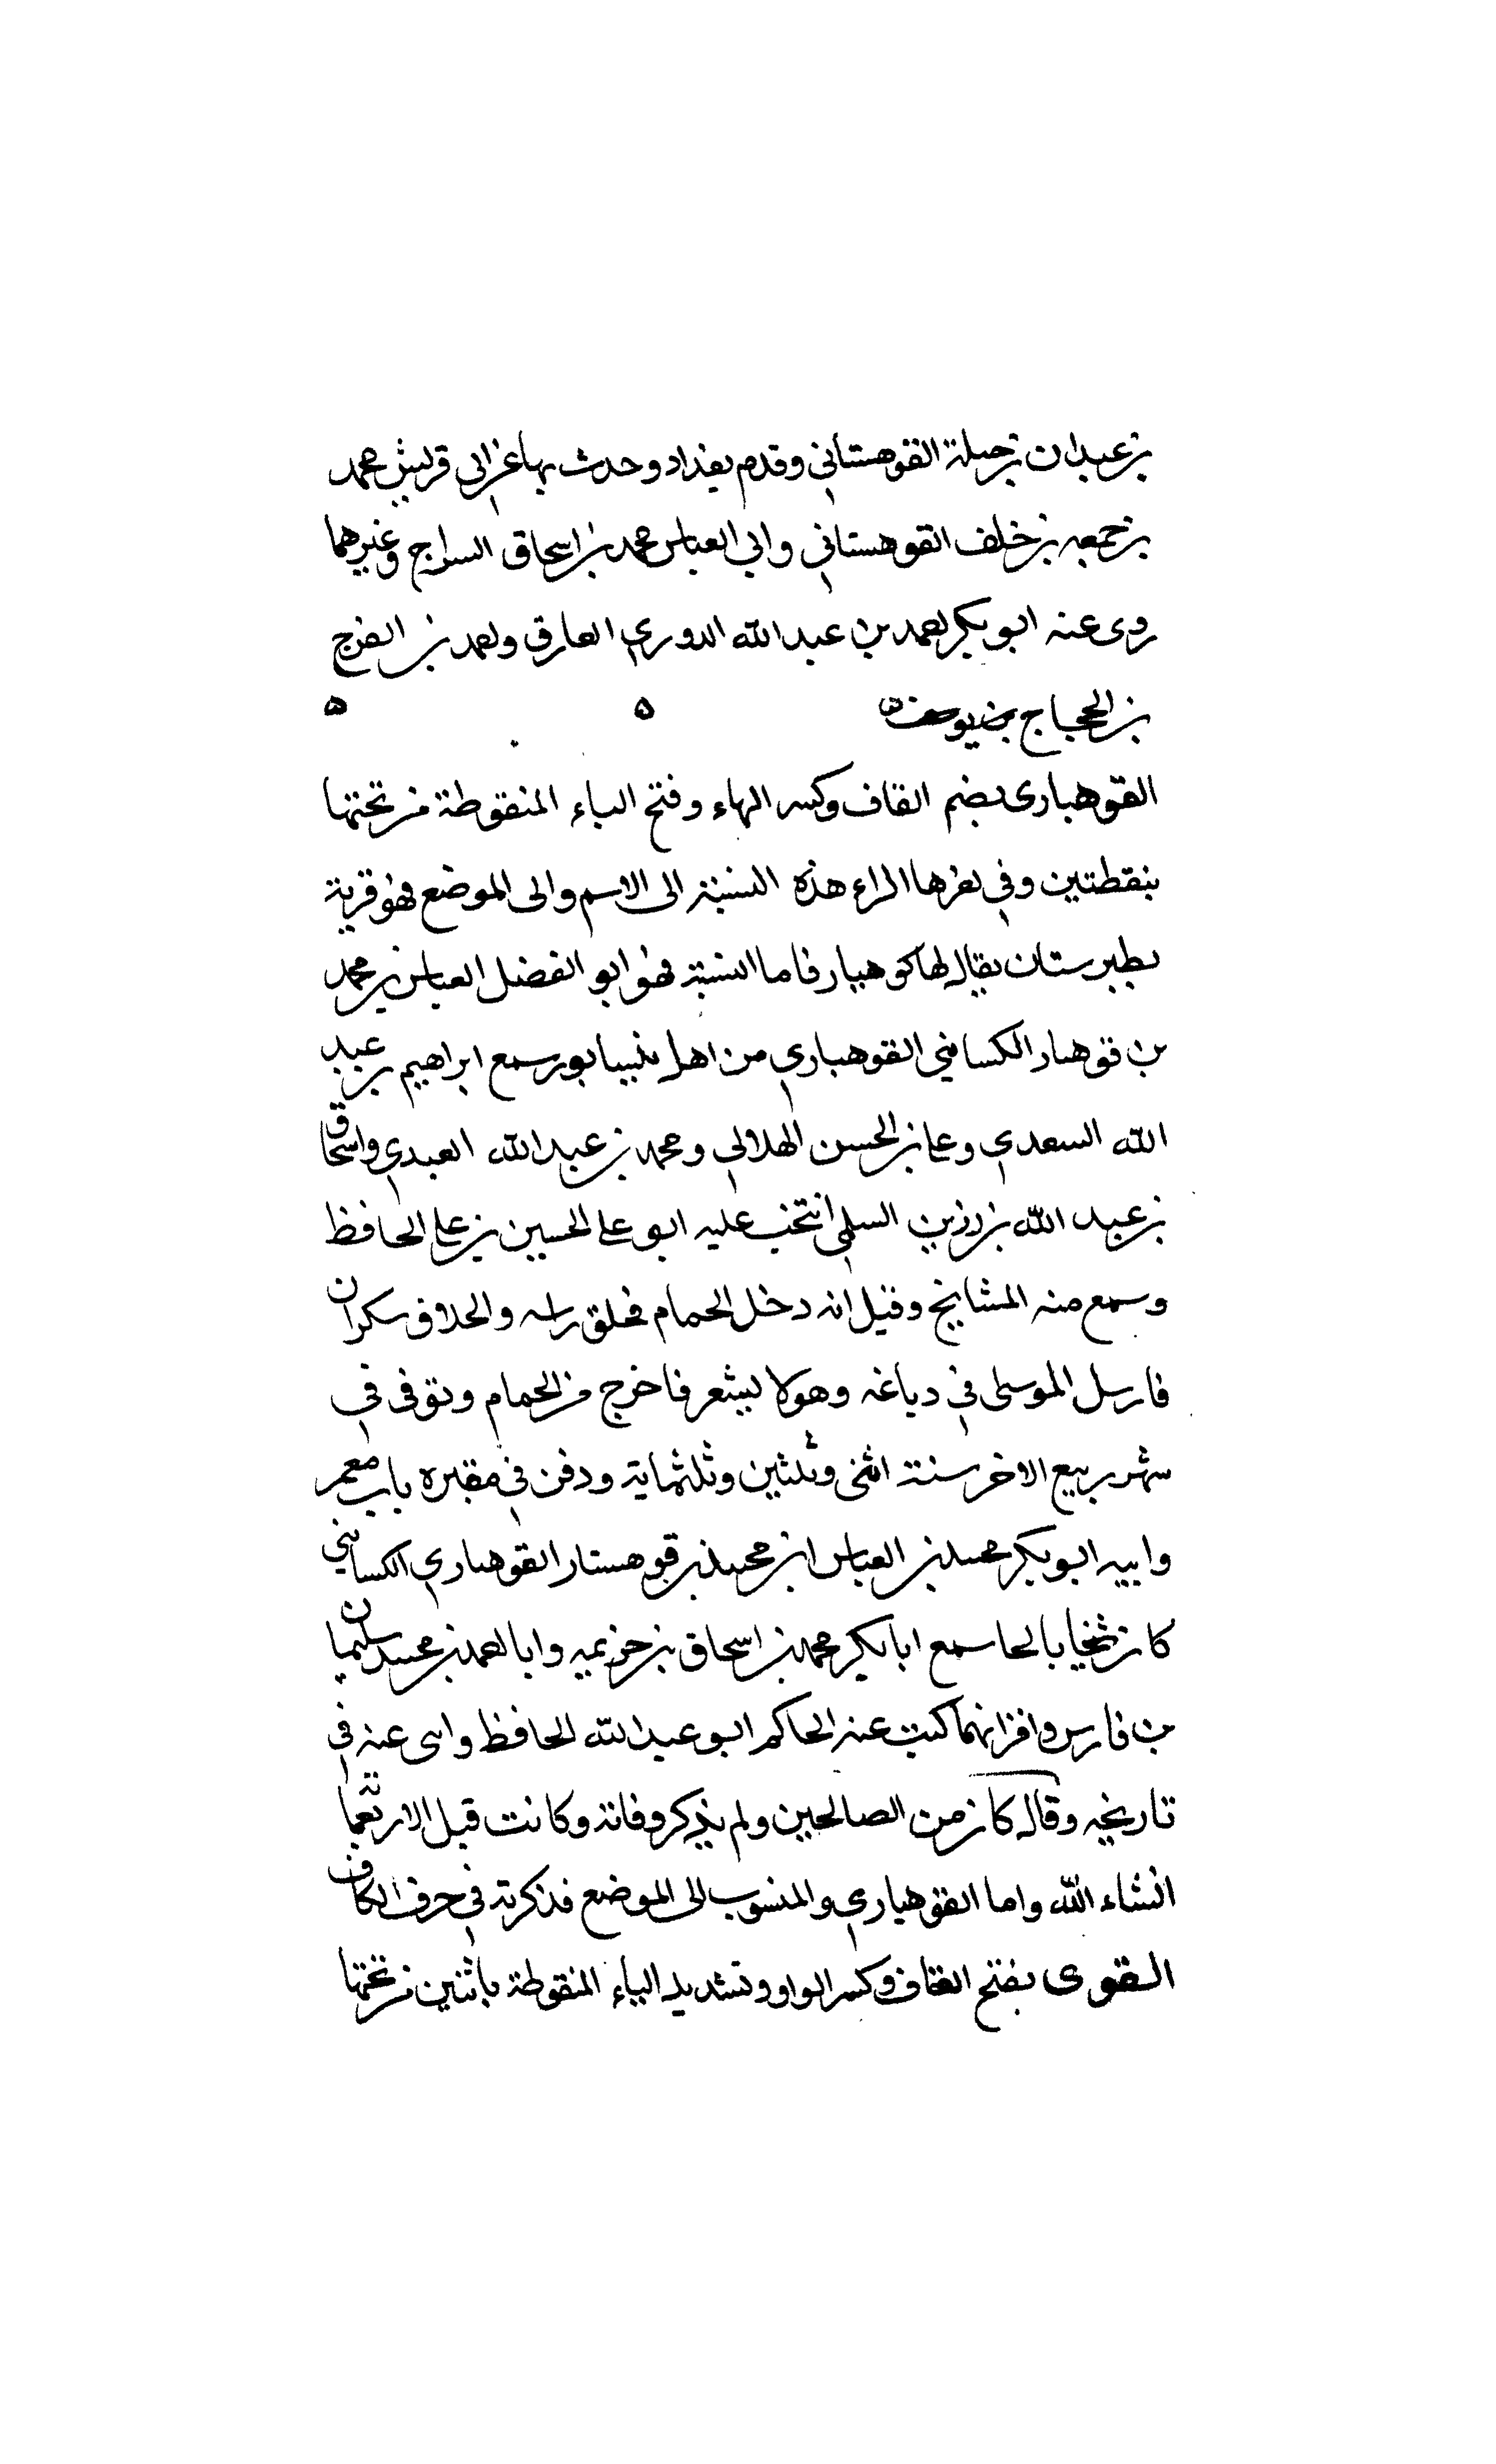 بن عبدان بن جبلة القوهستاني وقدم بغداد وحدث بها عن ابي قريش محمد
بن جمعه بن خلف القوهستاني وابي العباس محمد بن اسحاق السراج وغيرهما
روى عنه ابو بكر احمد بن عبد الله الدوري العارق واحمد بن الفرج
بن الحجاج بن يوسف
القوهيارى بضم القاف وكسر الهاء وفتح الياء المنقوطة من تحتها
بنقطتين وفي اخرها الراء هذه النسبة الى الاسم والى الموضع فهو قرية
بطبرستان يقال لها كوهيار فاما النسبة فهو ابو الفضل العباس بن محمد
بن قوهيار الكسايني القوهياري من اهل نيسابور سمع ابراهيم بن عبد
الله السعدي وعلي بن الحسن الهلالي ومحمد بن عبد الله العبدي واسحاق
بن عبد الله بن رزين السلمي انتخب عليه ابو علي الحسين بن علي الحافظ
وسمع منه المشايخ وقيل انه دخل الحمام فحلق راسه والحلاق سكران
فارسل الموسى في دباغه وهو لا يشعر فاخرج من الحمام وتوفى في
شهر ربيع الاخر سنة اثنى وثلثين وثلثماية ودفن في مقبره باب معمر
وابيه ابو بكر محمد بن العباس ابن محمد بن قوهستار القوهياري الكسايني
كان شيخا سمع ابا بكر محمد بن اسحاق بن خزيمه وابا احمد بن محمد سليمان
بن فارس واقرانهما كتبت عنه الحاكم ابو عبد الله الحافظ واسى عنه في
تاريخه وقال كان من الصالحين ولم يذكر وفاته وكانت قبل الاربعما
انشاء الله واما القوهياري والمنسوب الى الموضع فذكرته في حرف الكاف
القوى بفتح القاف وكسر الواو وتشديد الياء المنقوطة باثنين من تحتها